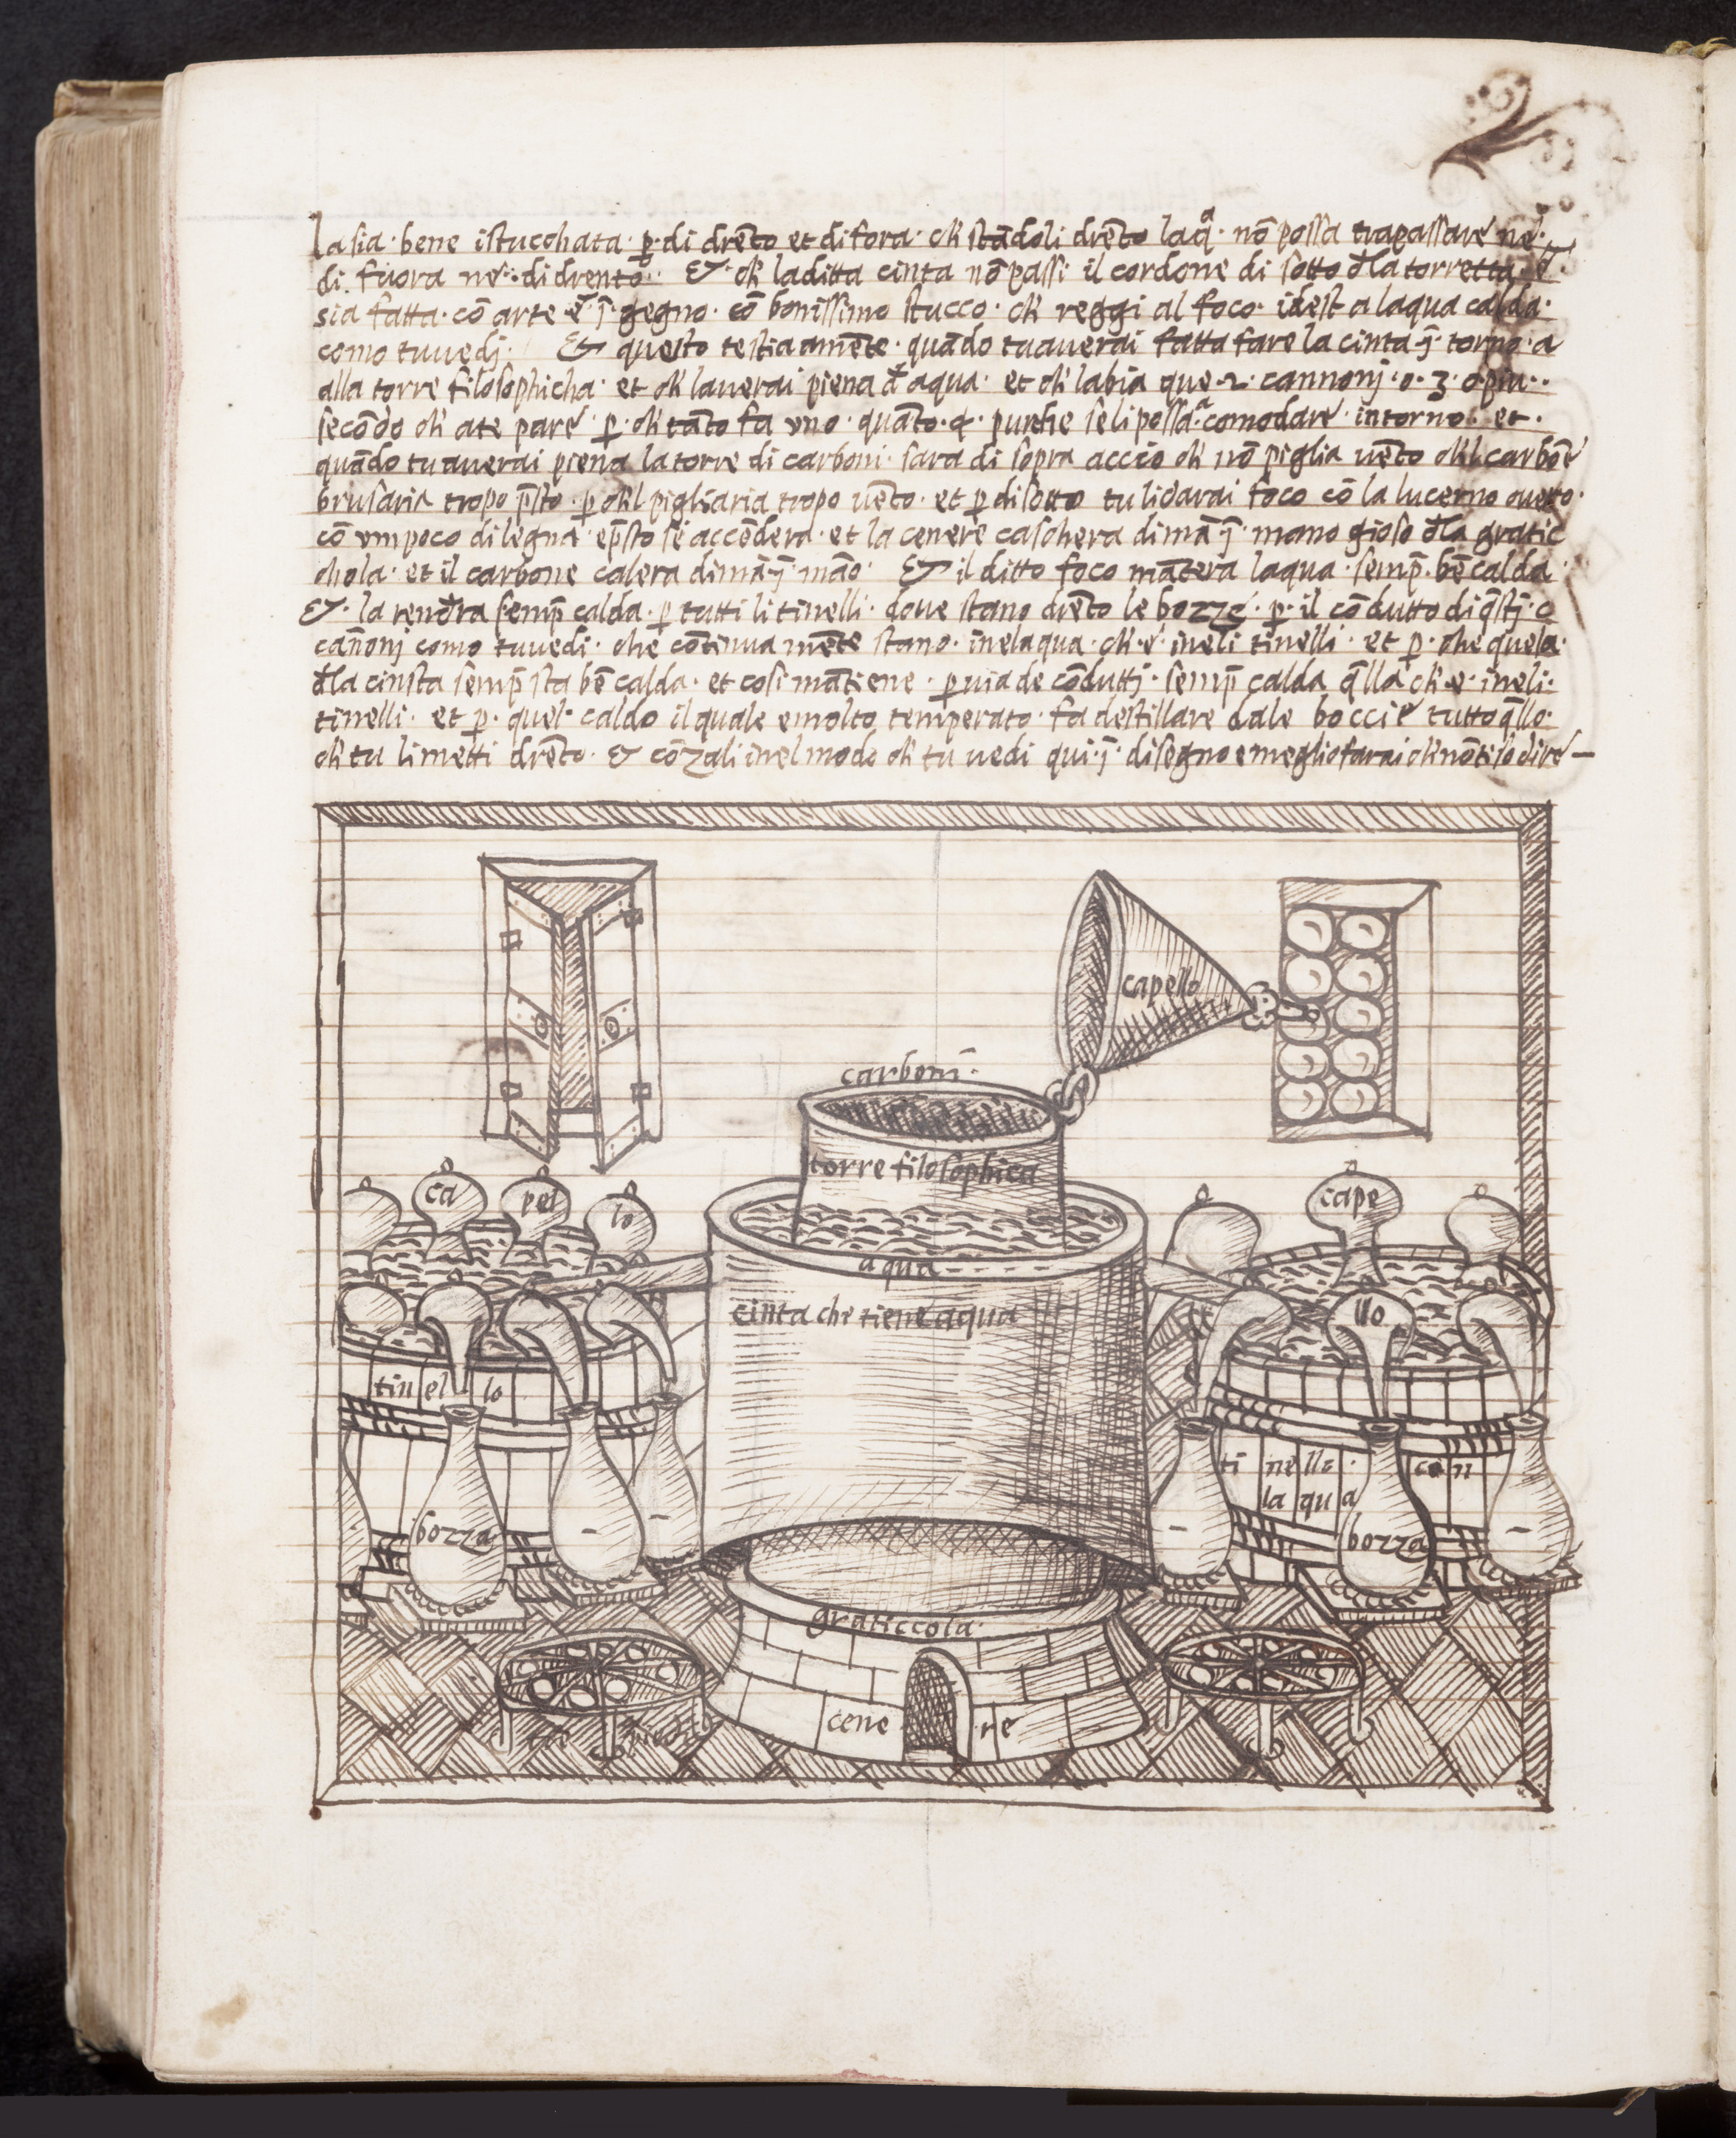 la sia · bene istucchata · p · di drēto et di fora · ch' stādoli drēto la q̃ᵃ · nō possa trapassare ne ·
di · fuora ne · di drento · & · ch' la ditta cinta nō passi il cordone di sotto d̄la torretta · & ·
sia fatta · cō arte e · ī · gegno · cō bonissimo stucco · ch' reggi al foco · idest a laqua calda ·
como tuuedj · & questo testiaamēte · quādo tuauerai fatta fare la cinta ī · torno · a
alla torre filosophicha · et ch' lauerai piena d̄ aqua · et ch' labia que · 2 · cannonj · o · 3 · o piu ·
secōdo ch' ate pare · p · ch' tāto fa vno · quāto · 4 · purche se li possaᵃ · comodare · intorno · et ·
quādo tuauerai piena la torre di carboni · sara di sopra accio ch' nō piglia uēto ch'l carbōe
brusaria tropo p̄sto · p ch'l pigliaria tropo uēto · et p di sotto tu li darai foco cō la lucerna ouero ·
cō vmpoco di legna · ep̄sto se accēdera · et la cenere caschera dimā ī · mano gioso d̄la gratic
chola · et il carbone calera dimā · ī · māo · & il ditto foco māterà laqua · semp̄ · bē calda ·
& · la rend̄ra semp̄ calda · p tutti li tinelli · doue stano drēto le bozze · p · il cōdutto di q̄stj · c
cañonj como tuuedi · che cōtinua mēte stano · inelaqua · ch · e · ineli tinelli · et p · che quela ·
d̄la cinsta semp̄ sta bē calda · et cosi mātiene · p uia de cōduttj · semp̄ calda q̄lla ch' e · ineli ·
tinelli · et p · quel · caldo il quale emolto temperato · fa destillare dale boccie tutto q̄llo ·
ch' tu li metti drēto · & cōzali inel modo ch' tu uedi qui · ī · disegno e meglio farai ch' nō ti so dire —
capello
carbonī ·
torre filosophica
ca pel lo
cape
aqua
cinta che tiene aqua
llo
tin el lo
ti nello · con
la qua
bozza
bozza
graticcola ·
cene re
tri piedi